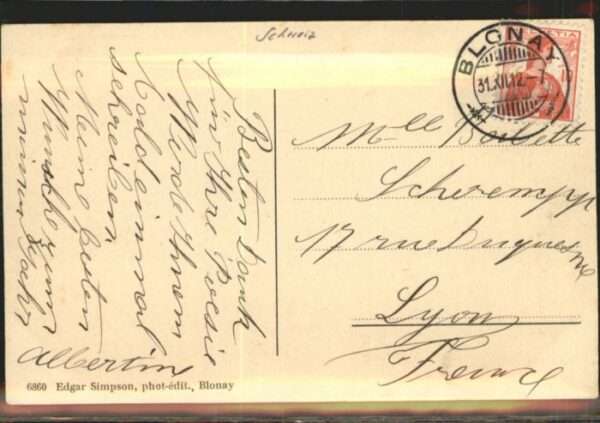 Schweiz
BLONAY
31.XII.12.-7
HELVETIA
10
Besten Dank
für Ihre Poesie
Werde Ihnen
bald einmal
schreiben.
Meine besten
Wünsche zum
neuen Jahr
Albertin
Mlle
Schrempp
17 rue Duquesne
Lyon
France
6860 Edgar Simpson, phot-édit., Blonay